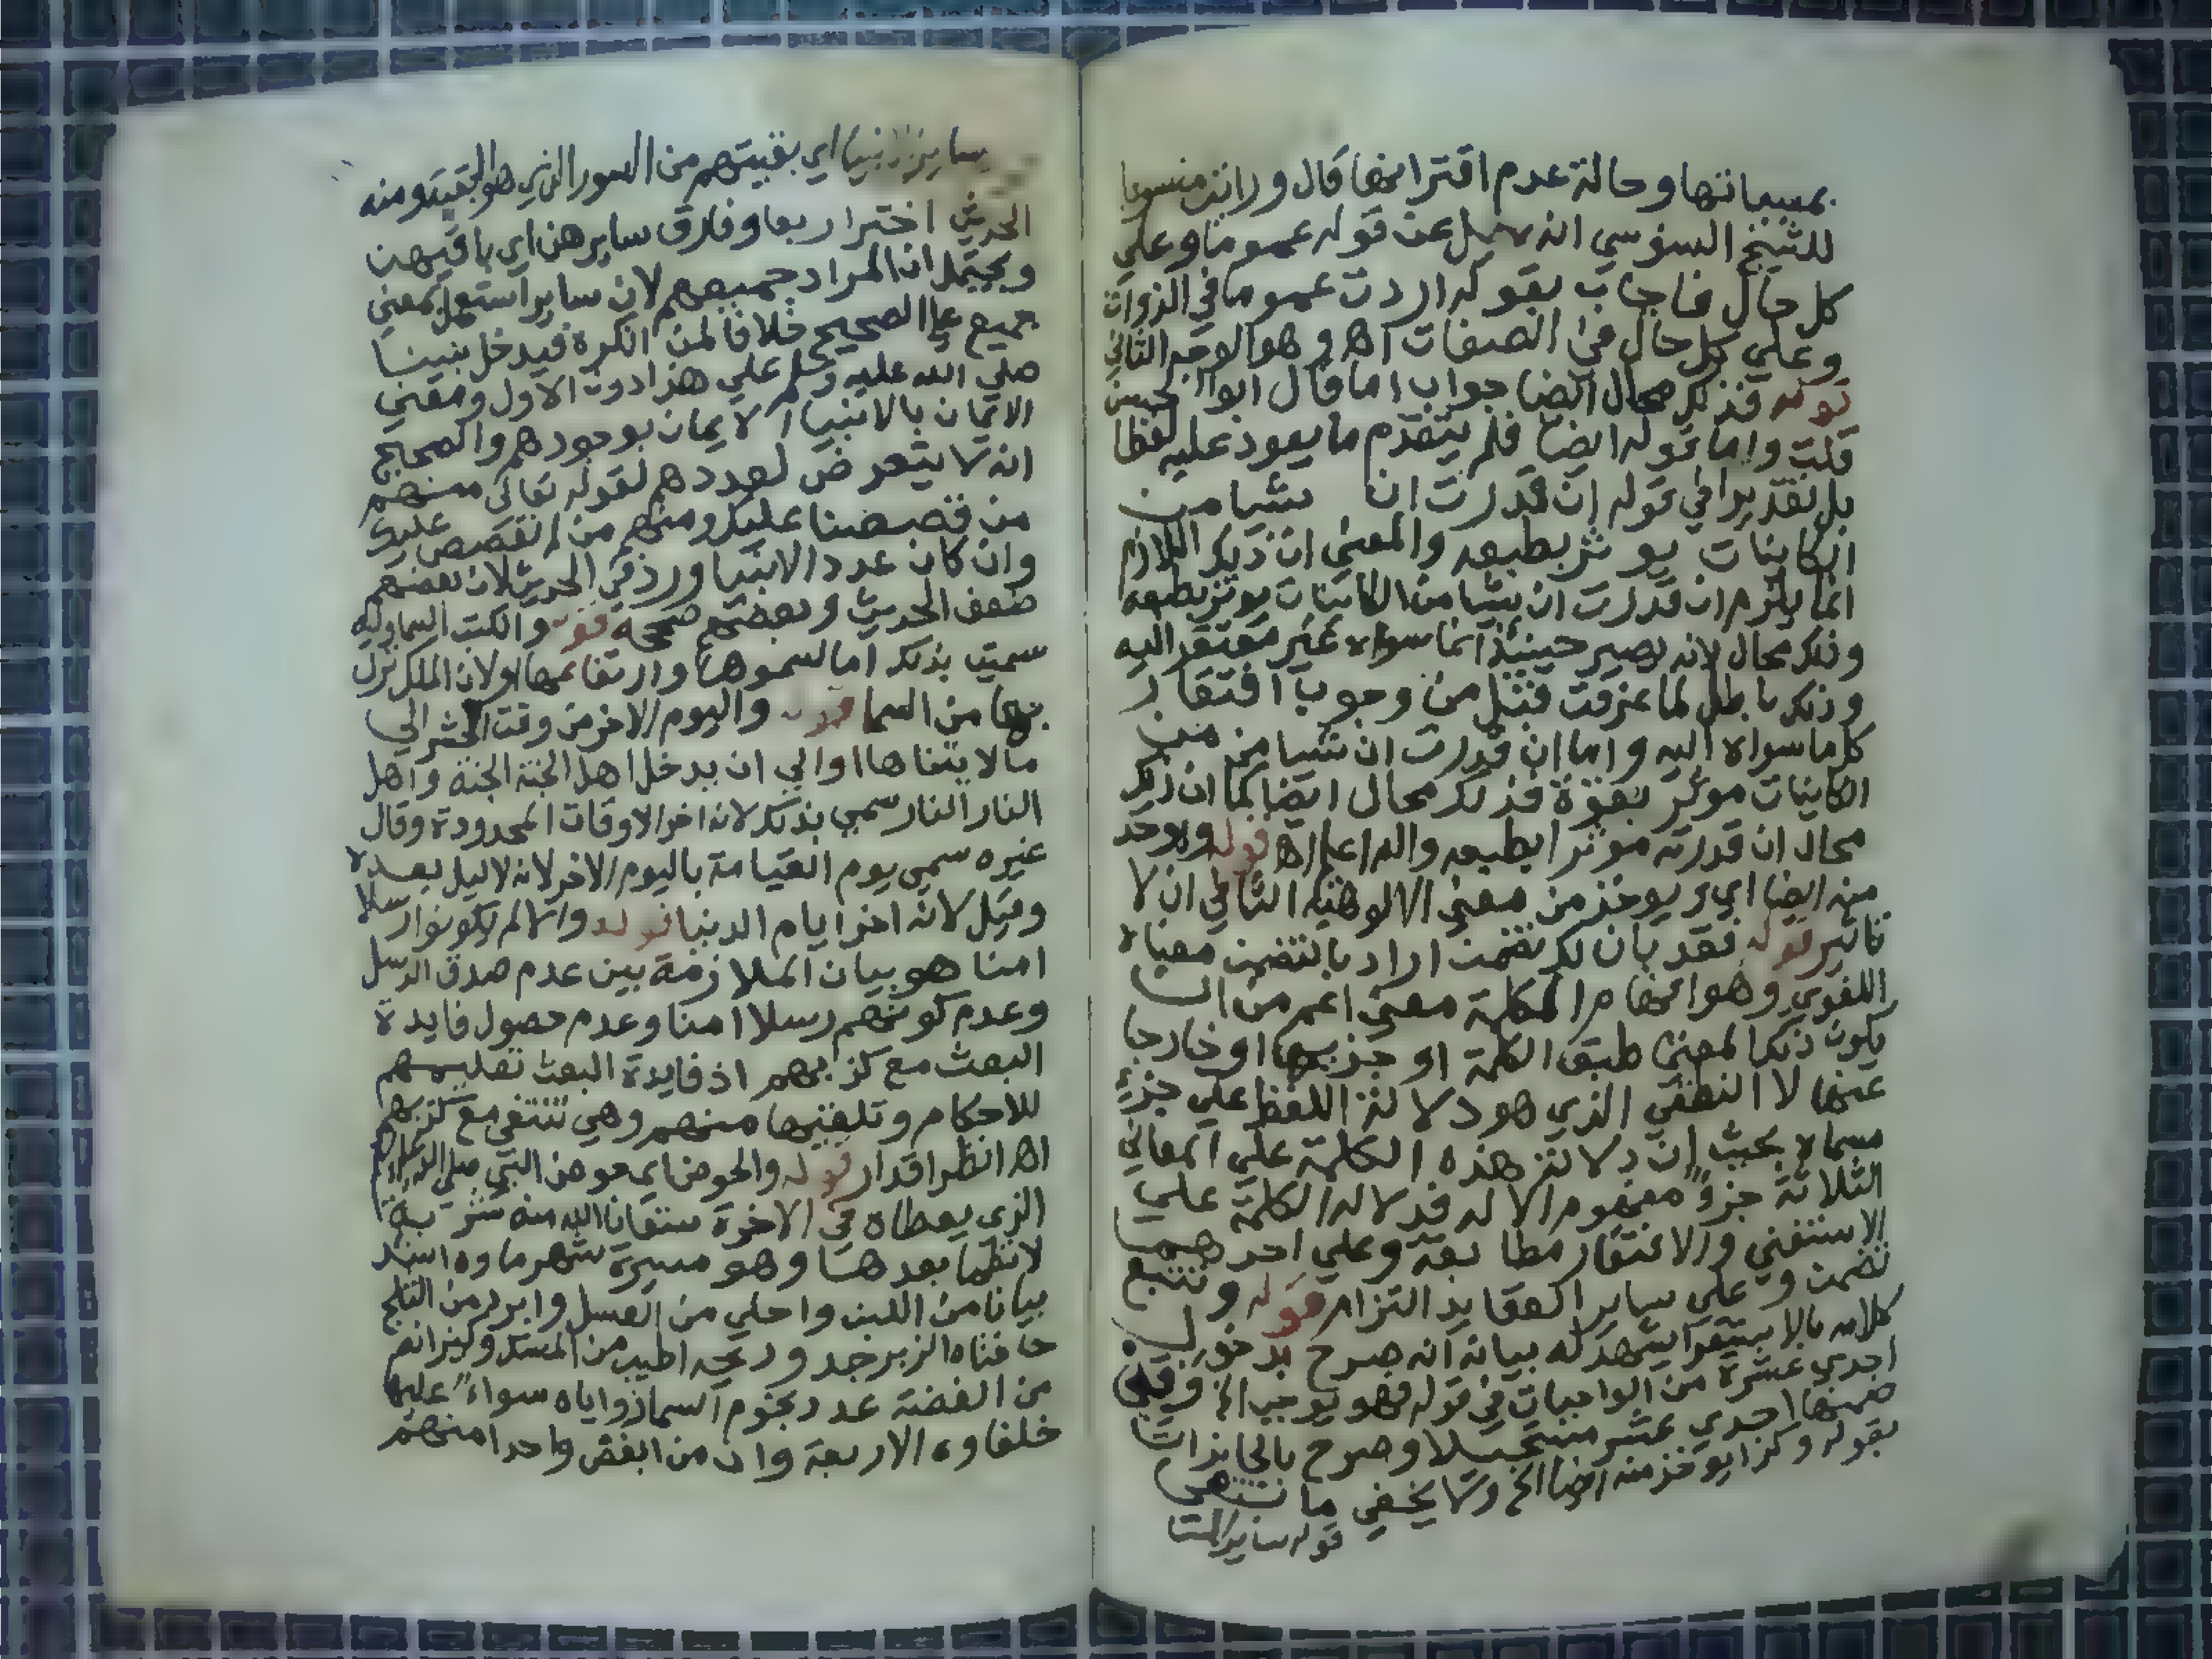 بمسبباتها وحالة عدم اقترانها قال ورايت منسوبا
للشيخ السنوسي انه سيل عن قوله عموما وعلي
كل حال فاجاب بقوله اردت عموما في الذوات
وعلي كل حال في الصفات اه وهو الوجه الثاني
قوله فذلك محال ايضا جواب اما قال ابو الحسن
قلت واما قوله ايضا فلم يتقدم ما يعود عليه لفظا
بل تقديرا في قوله ان قدرت ان شيا من
الكاينات يوثر بطبعه والمعني ان ذلك اللازم
انما يلزم ان قدرت ان شيا من الكاينات يوثر بطبعه
وذلك محال لانه يصير حينيذ ما سواه غير مفتقر اليه
وذلك باطل لما عرفت قبل من وجوب افتقار
كل ما سواه اليه واما ان قدرت ان شيا من
الكاينات موثر بقوة فذلك محال ايضا كما ان ذلك
محال ان قدرته موثرا بطبعه والله اعلم اه قوله ويوخذ
منه ايضا اي ويوخذ من معني الالوهية الثاني ان لا
تاثير قوله فقد بان لك تضمن اراد بالتضمن معناه
اللغوي وهو افهام الكلمة معني اعم من ان
يكون ذلك المعني طبق الكلمة او جزيها او خارجا
عنها لا النطقي الذي هو دلالة اللفظ علي جزء
مسماه بحيث ان دلالة هذه الكلمة علي المعاني
الثلاثة جزؤ مفهوم الاله فدلالة الكلمة علي
الاستغني والافتقار مطابقة وعلي احدهما
تضمن وعلي ساير العقايد التزام قوله وتتبع
كلامه بالاستقرا يشهد له بيانه انه صرح بدخول
احدي عشرة من الواجبات في قوله فهو يوجب الخ وفي
ضمنها احدي عشر مستحيلا وصرح بالجايزات
بقوله وكذا يوخذ منه ايضا الخ ولا يخفي ما تنتهي
قوله ساير
ساير الانبيا اي بقيتهم من السور الذي هو البقية ومنه
الحديث اختر اربعا وفارق سايرهن اي باقيهن
ويحتمل ان المراد جميعهم لان ساير استعمل بمعني
جميع علي الصحيح خلافا لمن انكره فيدخل نبينا
صلي الله عليه وسلم علي هذا دون الاول ومعني
الايمان بالانبيا الايمان بوجودهم والصحيح
انه لا يتعرض لعددهم لقوله تعالي منهم
من قصصنا عليك ومنهم من لم نقصص عليك
وان كان عدد الانبيا ورد في الحديث لان بعضهم
ضعف الحديث وبعضهم صححه قوله والكتب السماوية
سميت بذلك اما لسموها وارتفاعها او لان الملك نزل
بها من السما قوله واليوم الاخر من وقت الحشر الي
ما لا يتناها او الي ان يدخل اهل الجنة الجنة واهل
النار النار سمي بذلك لانه اخر الاوقات المحدودة وقال
غيره سمي يوم القيامة باليوم الاخر لانه لا ليل بعده
وقيل لانه اخر ايام الدنيا قوله والا لم يكونوا رسلا
امنا هو بيان الملازمة بين عدم صدق الرسل
وعدم كونهم رسلا امنا وعدم حصول فايدة
البعث مع كذبهم اذ فايدة البعث تعليمهم
للاحكام وتلقيها منهم وهي تنتفي مع كذبهم
اه انظر اقدار قوله والحوض اي حوض النبي صلي الله عليه وسلم
الذي يعطاه في الاخرة سقانا الله منه شربة
لا نظما بعدها وهو مسيرة شهر ماوه اشد
بيانا من اللبن واحلي من العسل وابرد من الثلج
حافتاه الزبرجد وريحه اطيب من المسك وكيزانه
من الفضة عدد نجوم السما زواياه سواء عليها
خلفاوه الاربعة وان من ابغض واحدا منهم